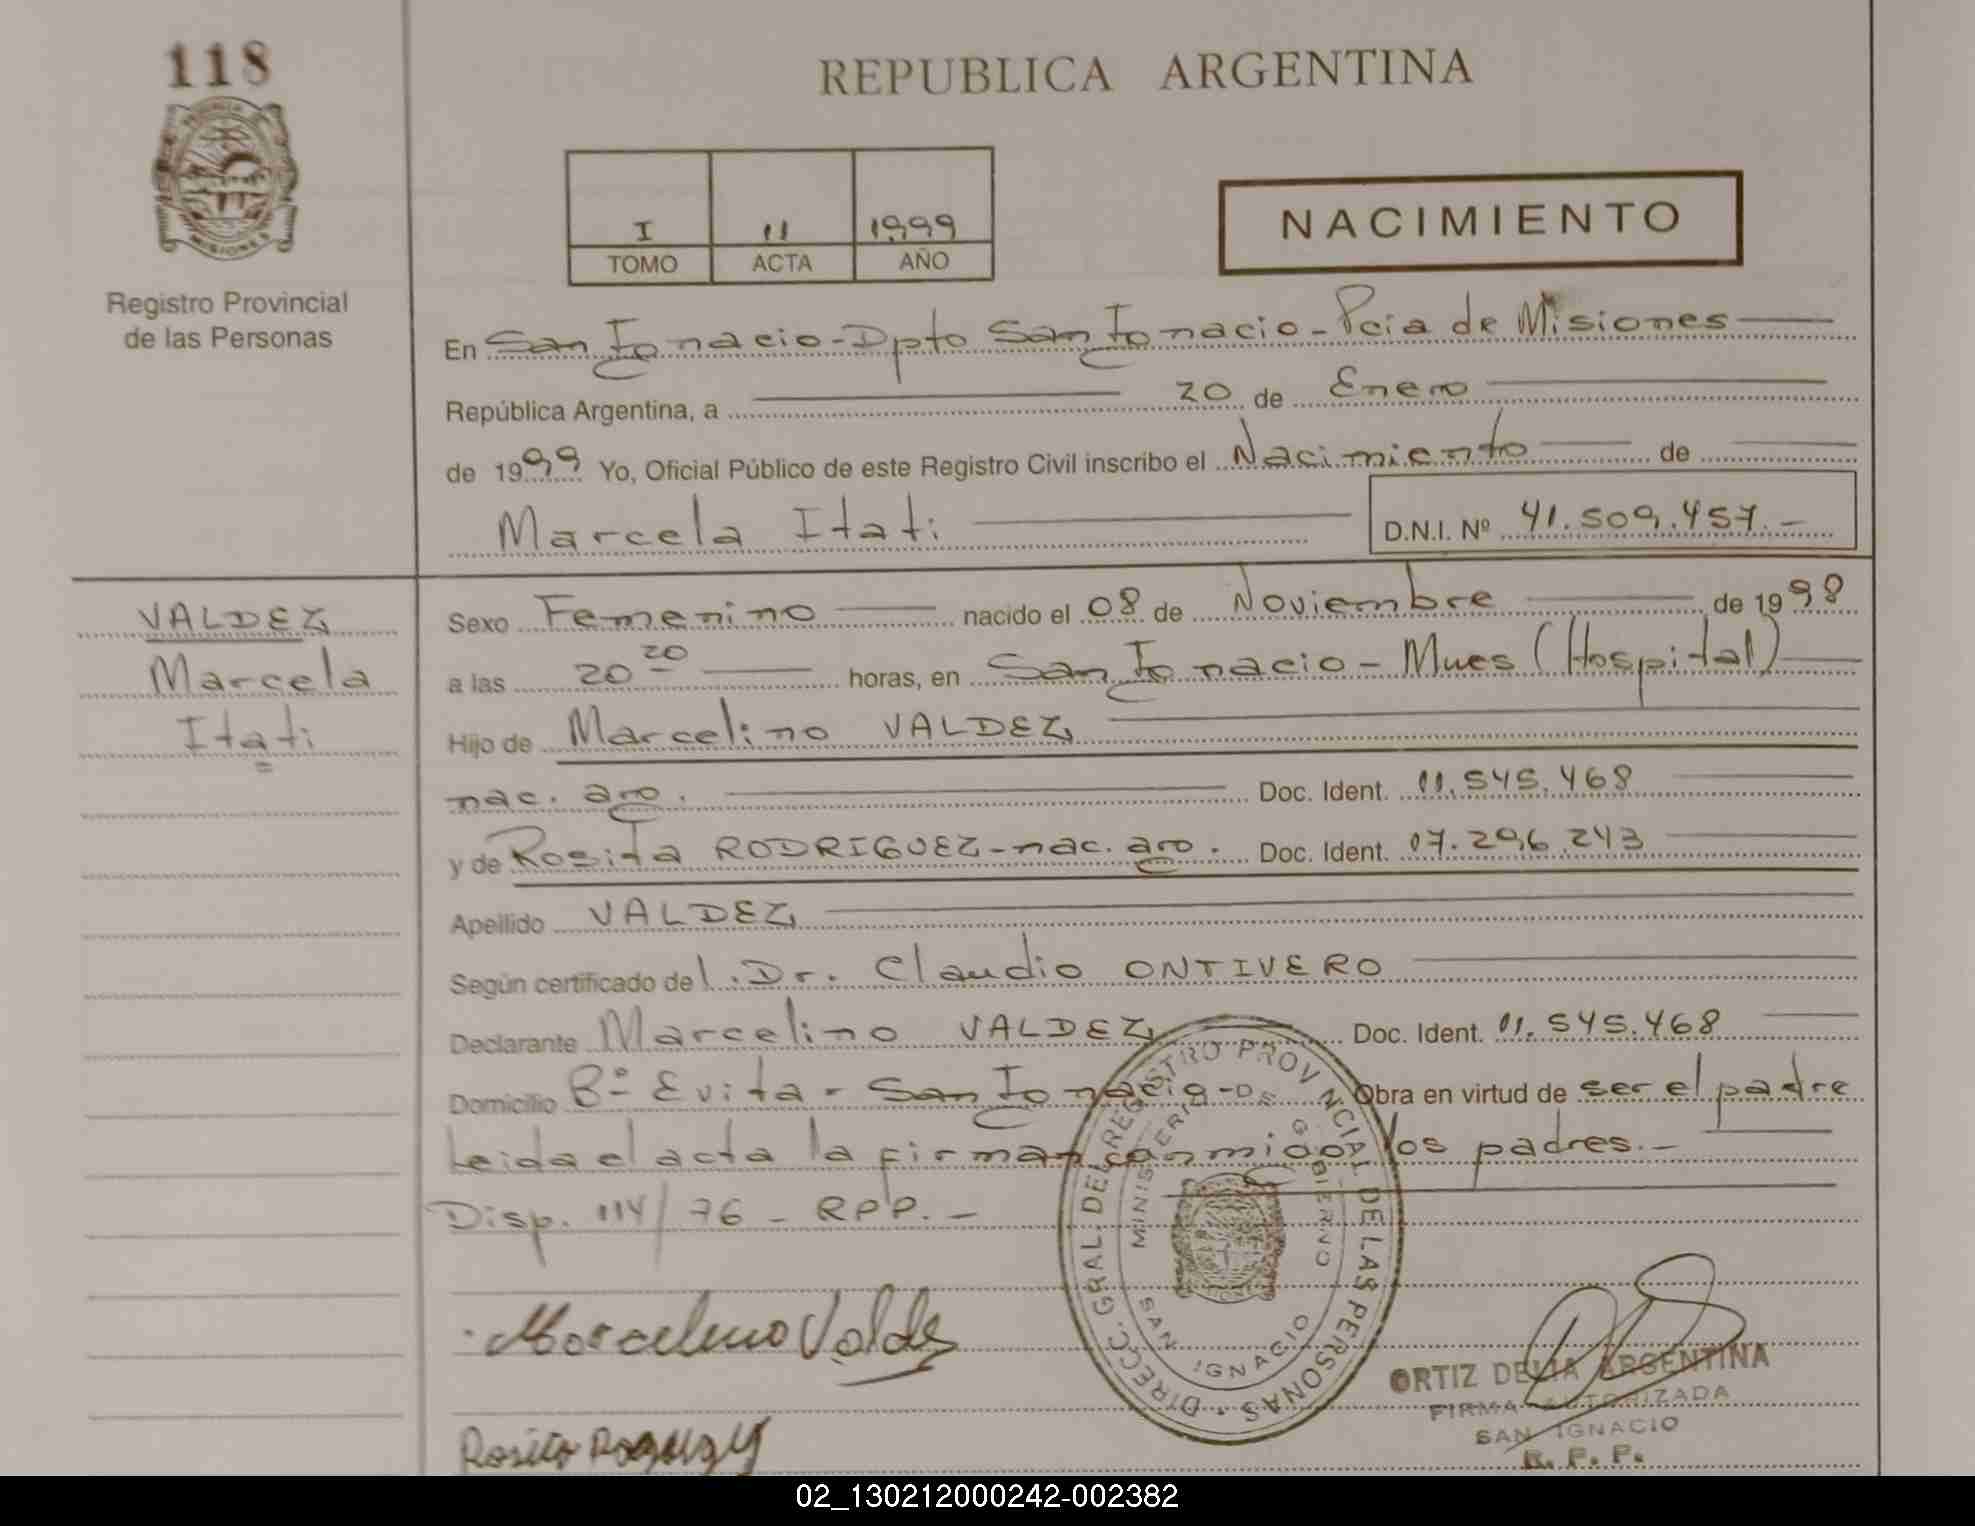 118
REPUBLICA ARGENTINA
I 11 1999
TOMO ACTA AÑO
NACIMIENTO
Registro Provincial
de las Personas
En San Ignacio - Dpto San Ignacio - Pcia de Misiones
República Argentina, a 20 de Enero
de 1999 Yo, Oficial Público de este Registro Civil inscribo el Nacimiento de
Marcela Itati D.N.I. Nº 41.509.457.-
VALDEZ
Marcela
Itati
Sexo Femenino nacido el 08 de Noviembre de 1998
a las 20 20 horas, en San Ignacio - Mnes (Hospital)
Hijo de Marcelino VALDEZ
nac. arg. Doc. Ident. 11.545.468
y de Rosita RODRIGUEZ - nac. arg. Doc. Ident. 07.296.243
Apellido VALDEZ
Según certificado del Dr. Claudio ONTIVERO
Declarante Marcelino VALDEZ Doc. Ident. 11.545.468
Domicilio Bº Evita - San Ignacio - Obra en virtud de ser el padre
Leida el acta la firman conmigo los padres.-
Disp. 114/76 - RPP. -
DIRECC. GRAL. DEL REGISTRO PROVINCIAL DE LAS PERSONAS
MINISTERIO DE GOBIERNO
SAN IGNACIO
Marcelino Valdez
ORTIZ DELIA ARGENTINA
FIRMA AUTORIZADA
SAN IGNACIO
R. P. P.
Rosita
02_130212000242-002382